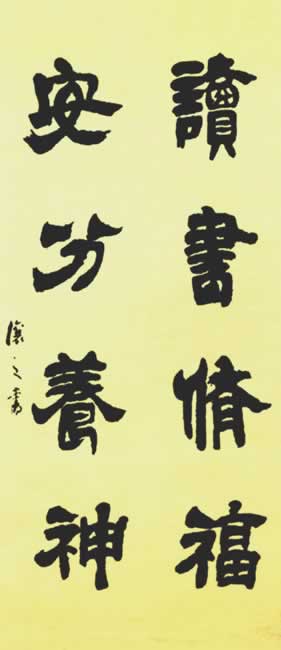 讀書脩福
安分養神
讓之書